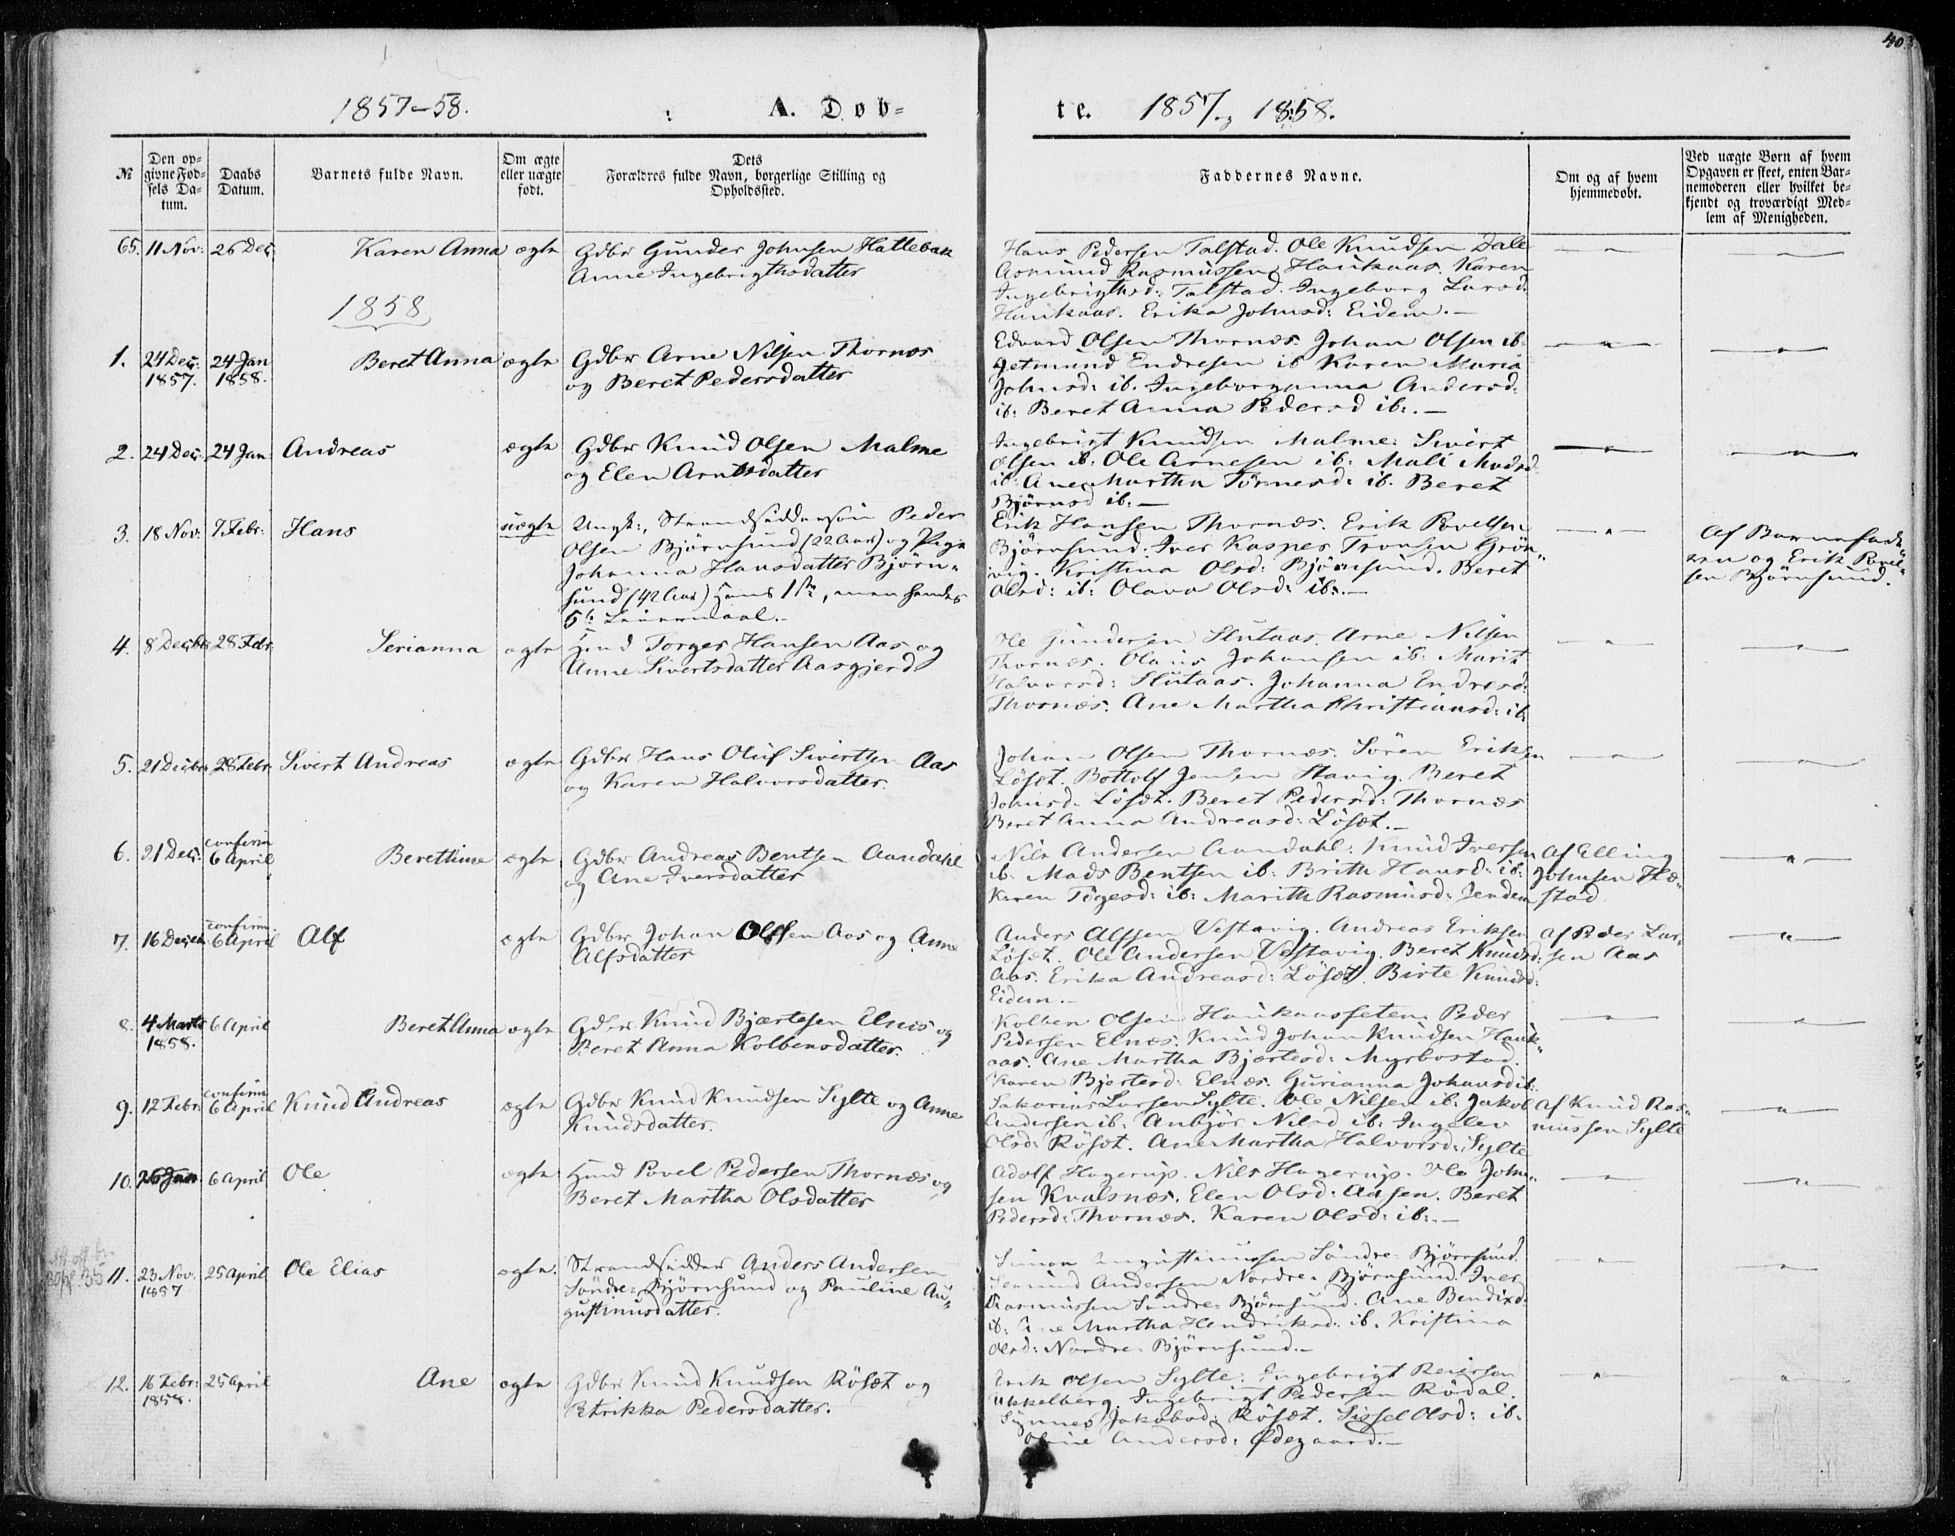 40.
1857-58.
A. Døb-
te. 1857 og 1858.
№
Den op-
givne Fød-
sels Da-
tum.
Daabs
Datum.
Barnets fulde Navn.
Om ægte
eller uægte
født.
Dets
Forældres fulde Navn, borgerlige Stilling og
Opholdssted.
Faddernes Navne.
Om og af hvem
hjemmedøbt.
Ved uægte Børn af hvem
Opgaven er skeet, enten Bar-
nemoderen eller hvilket be-
kjendt og troværdigt Med-
lem af Menigheden.
65. 11 Nov: 26 Dec: Karen Anna ægte Gdbr Gunder Johnsen Hattebak
Anne Ingebrigthsdatter
Hans Pedersen Talstad. Ole Knudsen Dale
Asmund Rasmussen Haukaas. Karen
Ingebrigthsd: Talstad. Ingeborg Larsd:
Haukaas. Erika Johnsd: Eidem.—
1858
1. 24 Dec: 1857. 24 Jan 1858. Beret Anna ægte Gdbr Arne Nilsen Thornæs
og Beret Pedersdatter
Edvard Olsen Thornæs. Johan Olsen ib.
Getmund Endresen ib Karen Maria
Johnsd: ib. Ingeborganna Andersd:
ib: Beret Anna Pedersd ib:.—
2. 24 Dec: 24 Jan Andreas ægte Gdbr Knud Olsen Malme
og Elen Arntsdatter
Ingebrigt Knudsen Malme: Sivert
Olsen ib: Ole Arnesen ib: Mali Madsd
ib: Ane Martha Tørresd: ib. Beret
Bjørnsd ib:—
3. 18 Nov. 7 Febr: Hans uægte Ungk:, Strandsiddersøn Peder
Olsen Bjørnsund (22 Aar) og Pige
Johanna Hansdatter Bjørn-
sund (42 Aar) Hans 1ste, men hendes
5te Leiermaal.-
Erik Hansen Thornæs. Erik Povelsen
Bjørnsund. Iver Kasper Tronsen Grøn-
vig. Kristina Olsd: Bjørnsund. Beret
Olsd: ib: Olava Olsd: ib:.—
Af Barnefade-
ren og Erik Povel-
sen Bjørnsund.
4. 8 Decbr 28 Febr. Serianna ægte Hmd Torger Hansen Aas og
Anne Sivertsdatter Aasgjerd
Ole Gundersen Slutaas. Arne Nilsen
Thornæs. Olaus Johansen ib: Marit
Halvorsd: Slutaas. Johanna Endresd:
Thornæs. Ane Martha Christiansd: ib:
5. 21 Decbr 28 Febr. Sivert Andreas ægte Gdbr Hans Oluf Sivertsen Aas
og Karen Halvorsdatter.
Johan Olsen Thornæs. Søren Eriksen
Løsæt. Bottolf Jensen Stavig. Beret
Johnsd. Løsæt. Beret Pedersd: Thornæs
Beret Anna Andreasd: Løsæt.—
6. 21 Dec: confirm 6 April Berettine ægte Gdbr Andreas Bentsen Aandahl
og Ane Iversdatter
Nils Andersen Aandahl: Knud Iversen
ib. Mads Bentsen ib: Brith Hansd: ib:
Karen Tøgesd: ib: Marith Rasmusd: Jendem
Af Elling
Johnsen Træ-
stad
7. 16 Decbr confirm 6 April Alf ægte Gdbr Johan Olsen Aas og Anne
Alfsdatter
Anders Alfsen Vestavig. Andreas Eriksen
Løsæt. Ole Andersen Vestavig. Beret Knudsd:
Aas. Erika Andreasd: Løsæt. Birte Knudsd:
Eidem.—
Af Peder Lar-
sen Aas
8. 4 Marts 1858. 6 April Beret Anna ægte Gdbr Knud Bjærtesen Elnæs og
Beret Anna Kolbensdatter.
Kolben Olsen Haukaassetem. Peder
Pedersen Elnæs. Knud Johan Knudsen Hauk-
aas. Ane Martha Bjærtesd: Myrbostad.
Karen Bjertesd: Elnæs. Gurianna Johansd ib:
9. 12 Febr: confirm 6 April Knud Andreas ægte Gdbr Knud Knudsen Sylte og Anne
Knudsdatter.
Sakarias Larsen Sylte. Ole Nilsen ib: Jakob
Andersen ib: Anbjør Nilsd ib: Ingelev
Olsd: Røsæt. Ane Martha Halvorsd: Sylte
Af Knud Ras-
mussen Sylte
10. 26 Jan. 6 April Ole ægte Hmd Povel Pedersen Thornæs og
Beret Martha Olsdatter
Adolf Hagerup. Nils Hagerup. Ole John-
sen Kvalsnæs. Elen Olsd: Aasen. Beret
Pedersd: Thornæs. Karen Olsd: ib:.—
11. 23 Nov. 1857 25 April Ole Elias ægte. Strandsidder Anders Andersen
Søndre Bjørnsund og Pauline Au-
gustinusdatter.
Simon Augustinussen Søndre Bjørnsund.
Andersen Nordre Bjørnsund. Iver
Rasmussen Søndre Bjørnsund. Ane Bendixd:
ib: Ane Martha Hendriksd: ib. Kristina
Olsd: Nordre Bjørnsund.—
12. 16 Febr: 1858. 25 April Ane ægte Gdbr Knud Knudsen Røsæt og
Etrikka Pedersdatter.
Erik Olsen Sylte: Ingebrigt Reiersen
Ukkelberg. Ingebrigt Pedersen Rødal.
Synnev Jakobsd: Røsæt. Sissel Olsd: ib:
Andersd: Ødegaard.—